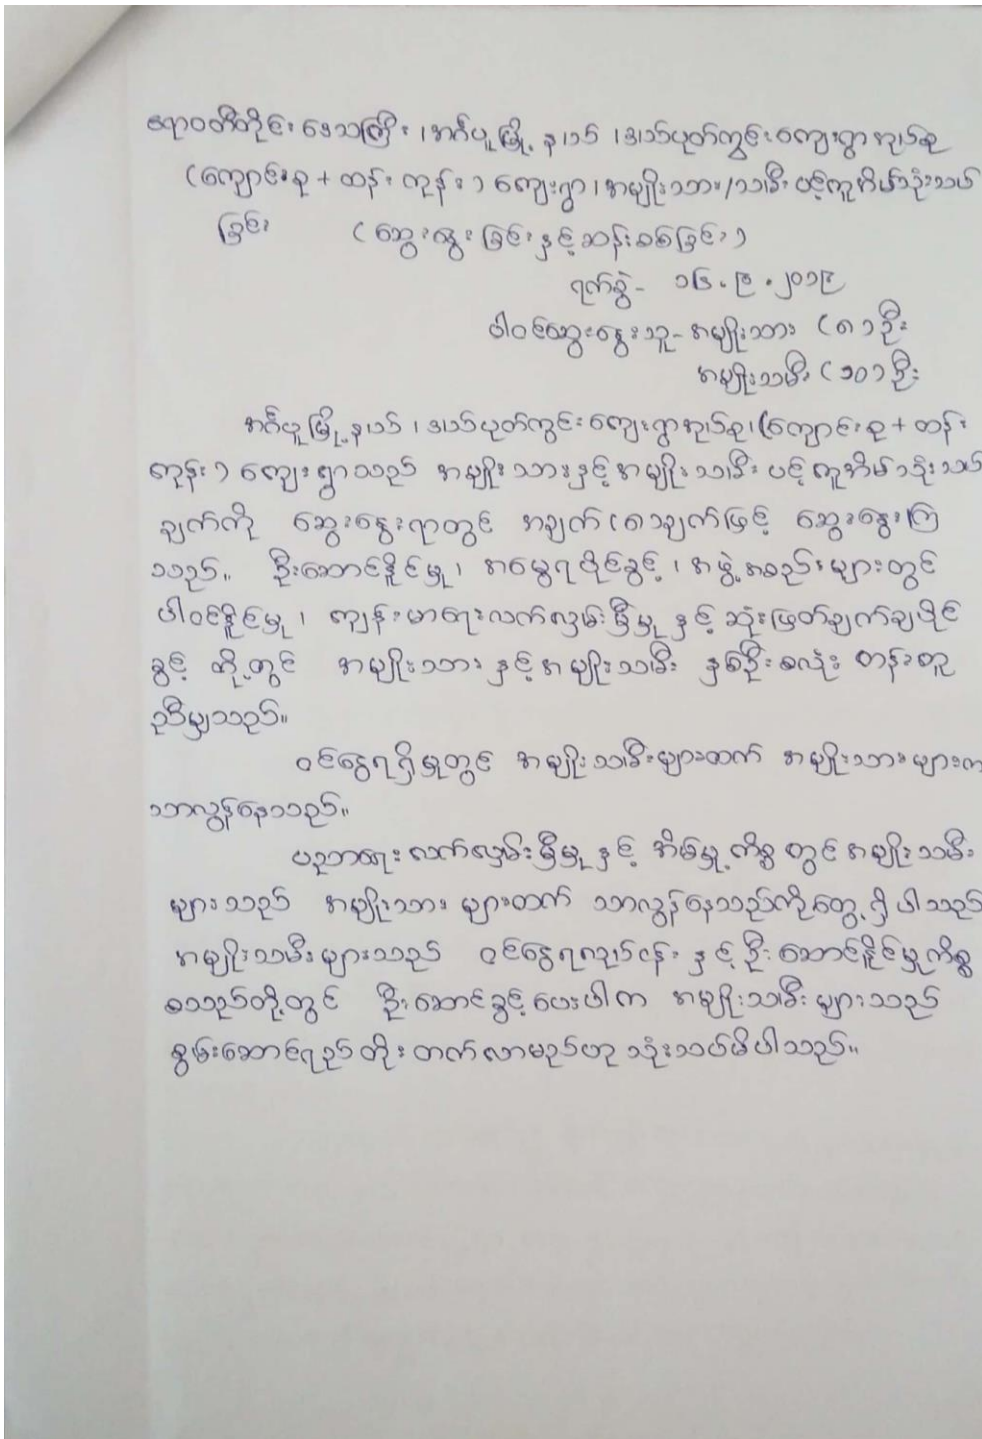 ဧရာဝတီတိုင်းဒေသကြီး၊ အင်္ဂပူမြို့နယ်၊ ဒါယ်ပုတ်ကွင်းကျေးရွာအုပ်စု
(ကျောင်းစု + ထန်းကုန်း) ကျေးရွာ၊ အမျိုးသား/သမီး ပင့်ကူအိမ်သုံးသပ်
ခြင်း (ဆွေးနွေးခြင်းနှင့်ဆန်းစစ်ခြင်း)
ရက်စွဲ - ၁၆.၉.၂၀၁၉
ပါဝင်ဆွေးနွေးသူ - အမျိုးသား (၈) ဦး
အမျိုးသမီး (၁၀) ဦး
အင်္ဂပူမြို့နယ်၊ ဒါယ်ပုတ်ကွင်းကျေးရွာအုပ်စု၊ (ကျောင်းစု + ထန်း
ကုန်း) ကျေးရွာသည် အမျိုးသားနှင့်အမျိုးသမီး ပင့်ကူအိမ်သုံးသပ်
ချက်ကို ဆွေးနွေးရာတွင် အချက် (၈) ချက်ဖြင့် ဆွေးနွေးကြ
သည်။ ဦးဆောင်နိုင်မှု၊ အမွေရပိုင်ခွင့်၊ အဖွဲ့အစည်းများတွင်
ပါဝင်နိုင်မှု၊ ကျန်းမာရေးလက်လှမ်းမှီမှု နှင့် ဆုံးဖြတ်ချက်ချပိုင်
ခွင့် တို့တွင် အမျိုးသားနှင့်အမျိုးသမီး နှစ်ဦးစလုံး တန်းတူ
ညီမျှသည်။
ဝင်ငွေရရှိမှုတွင် အမျိုးသမီးများထက် အမျိုးသားများက
သာလွန်နေသည်။
ပညာရေးလက်လှမ်းမှီမှု နှင့် အိမ်မှုကိစ္စတွင် အမျိုးသမီး
များသည် အမျိုးသားများထက် သာလွန်နေသည်ကိုတွေ့ရှိပါသည်
အမျိုးသမီးများသည် ဝင်ငွေရလုပ်ငန်း နှင့် ဦးဆောင်နိုင်မှုကိစ္စ
စသည်တို့တွင် ဦးဆောင်ခွင့်ပေးပါက အမျိုးသမီးများသည်
စွမ်းဆောင်ရည်တိုးတက်လာမည်ဟု သုံးသပ်မိပါသည်။